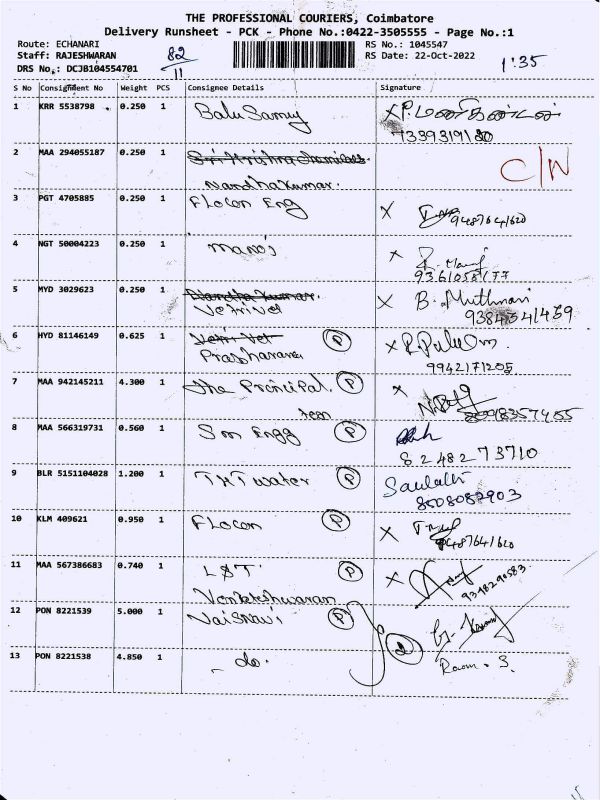 THE PROFESSIONAL COURIERS, Coimbatore
Delivery Runsheet - PCK - Phone No.:0422-3505555 - Page No.:1
Route: ECHANARI
Staff: RAJESHWARAN
DRS No.: DCJB104554701
82
11
RS No.: 1045547
RS Date: 22-Oct-2022
1:35
S No Consignment No Weight PCS Consignee Details Signature
1 KRR 5538798 0.250 1 Balu Samy X P.மணிகண்டன்
7339319180
2 MAA 294055187 0.250 1 C/N
Nandhakumar.
3 PGT 4705885 0.250 1 Flocon Eng X 9487641620
4 NGT 50004223 0.250 1 Manoj X
5 MYD 3029623 0.250 1 Nandha Kumar. X B. Muthmari
Vetrivel
6 HYD 81146149 0.625 1 Vetri Vel P X
9942171205
7 MAA 942145211 4.300 1 The Principal. P X
8 MAA 566319731 0.560 1 Sm Engg P
8248273710
9 BLR 5151104028 1.200 1 THT water P
8508087903
10 KLM 409621 0.950 1 Flocon P X
9487641620
11 MAA 567386683 0.740 1 L&T P X
Venkateshwaran
12 PON 8221539 5.000 1 Vaisnavi P
13 PON 8221538 4.850 1 - do. d Room. 3.